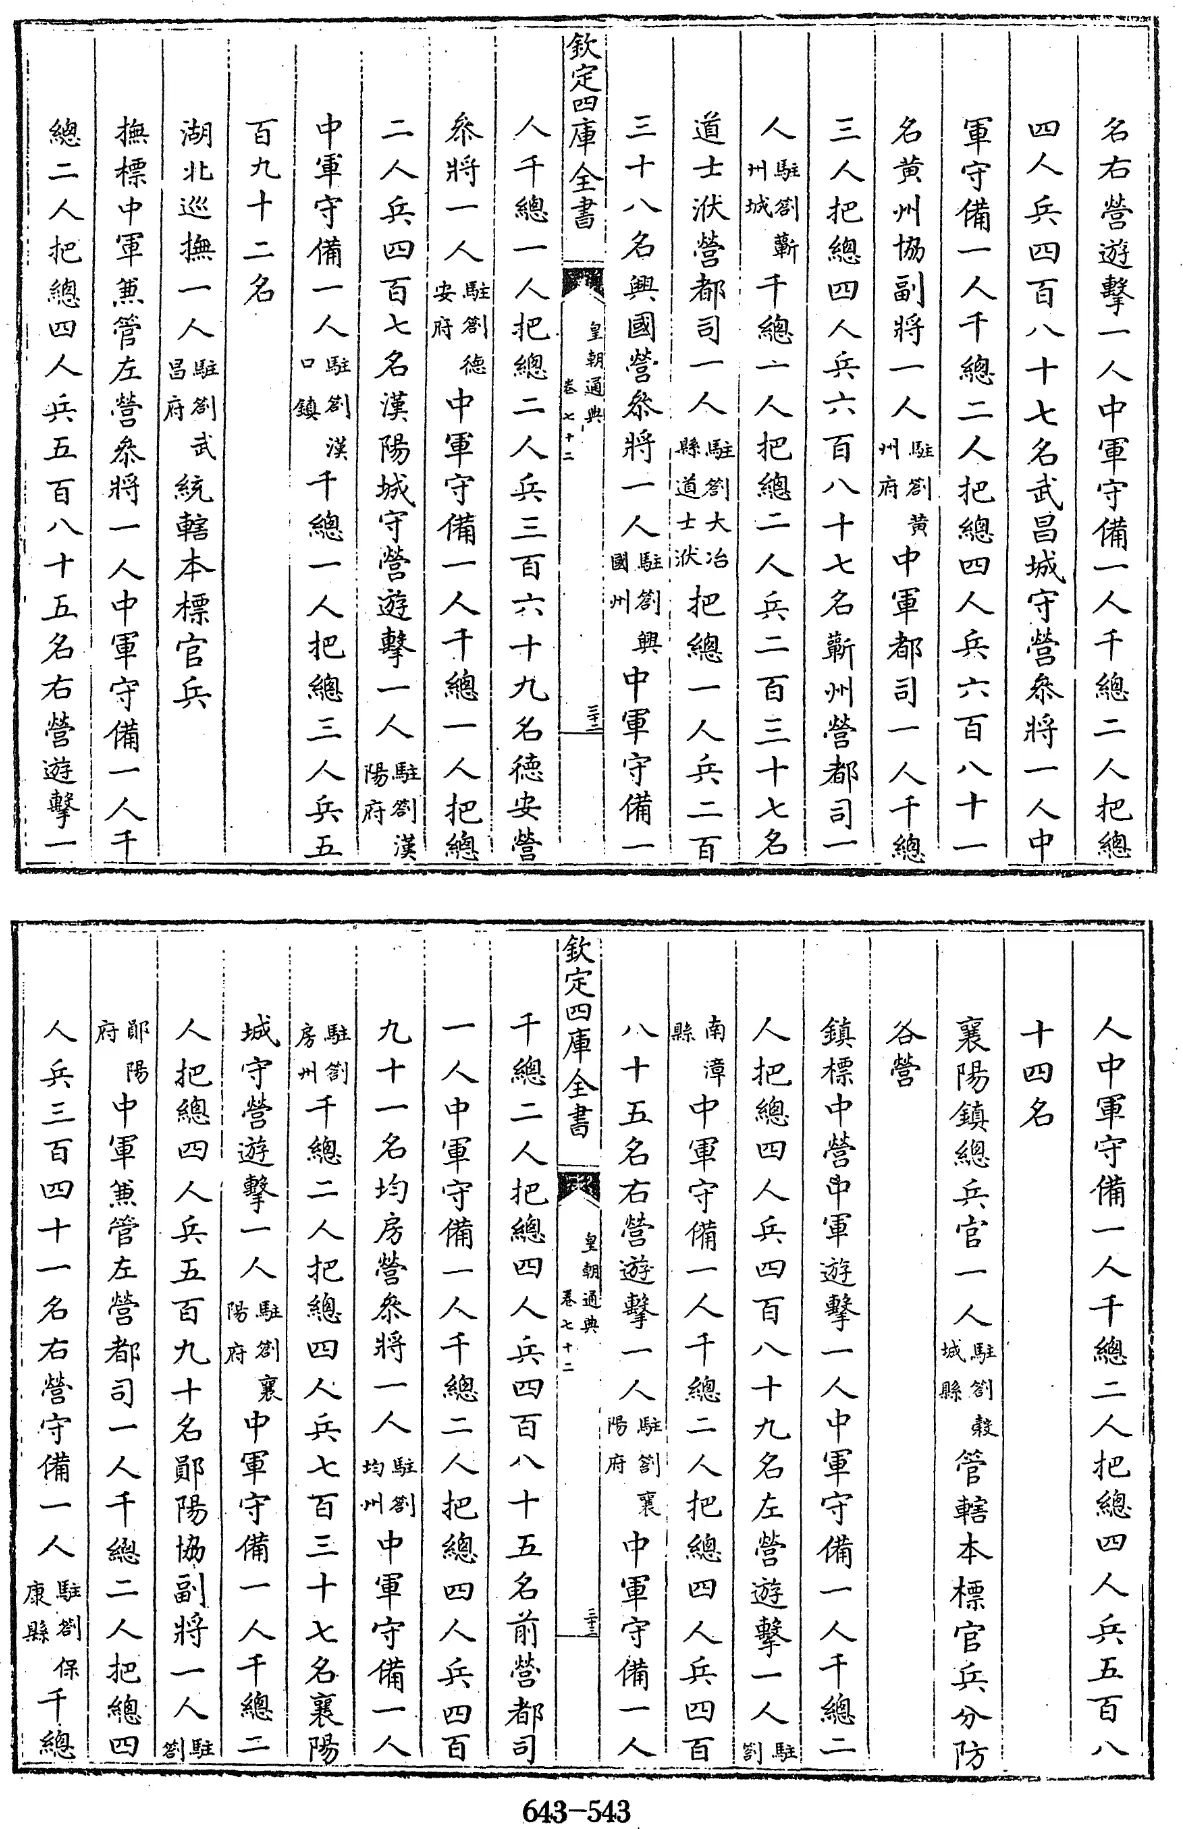 名右營遊擊一人中軍守備一人千總二人把總
四人兵四百八十七名武昌城守營叅將一人中
軍守備一人千總二人把總四人兵六百八十一
名黄州協副將一人駐劄黄州府中軍都司一人千總
三人把總四人兵六百八十七名蘄州營都司一
人駐劄蘄州城千總一人把總二人兵二百三十七名
道士洑營都司一人駐劄大冶縣道士洑把總一人兵二百
三十八名興國營叅將一人駐劄興國州中軍守備一
欽定四庫全書
皇朝通典
卷七十二
三十二
人千總一人把總二人兵三百六十九名德安營
叅將一人駐劄德安府中軍守備一人千總一人把總
二人兵四百七名漢陽城守營遊擊一人駐劄漢陽府
中軍守備一人駐劄漢口鎮千總一人把總三人兵五
百九十二名
湖北巡撫一人駐劄武昌府統轄本標官兵
撫標中軍兼管左營叅將一人中軍守備一人千
總二人把總四人兵五百八十五名右營遊擊一
人中軍守備一人千總二人把總四人兵五百八
十四名
襄陽鎮總兵官一人駐劄穀城縣管轄本標官兵分防
各營
鎮標中營中軍遊擊一人中軍守備一人千總二
人把總四人兵四百八十九名左營遊擊一人駐劄
南漳縣中軍守備一人千總二人把總四人兵四百
八十五名右營遊擊一人駐劄襄陽府中軍守備一人
欽定四庫全書
皇朝通典
卷七十二
三十三
千總二人把總四人兵四百八十五名前營都司
一人中軍守備一人千總二人把總四人兵四百
九十一名均房營叅將一人駐劄均州中軍守備一人
駐劄房州千總二人把總四人兵七百三十七名襄陽
城守營遊擊一人駐劄襄陽府中軍守備一人千總二
人把總四人兵五百九十名鄖陽協副將一人駐劄
鄖陽府中軍兼管左營都司一人千總二人把總四
人兵三百四十一名右營守備一人駐劄保康縣千總
643-543